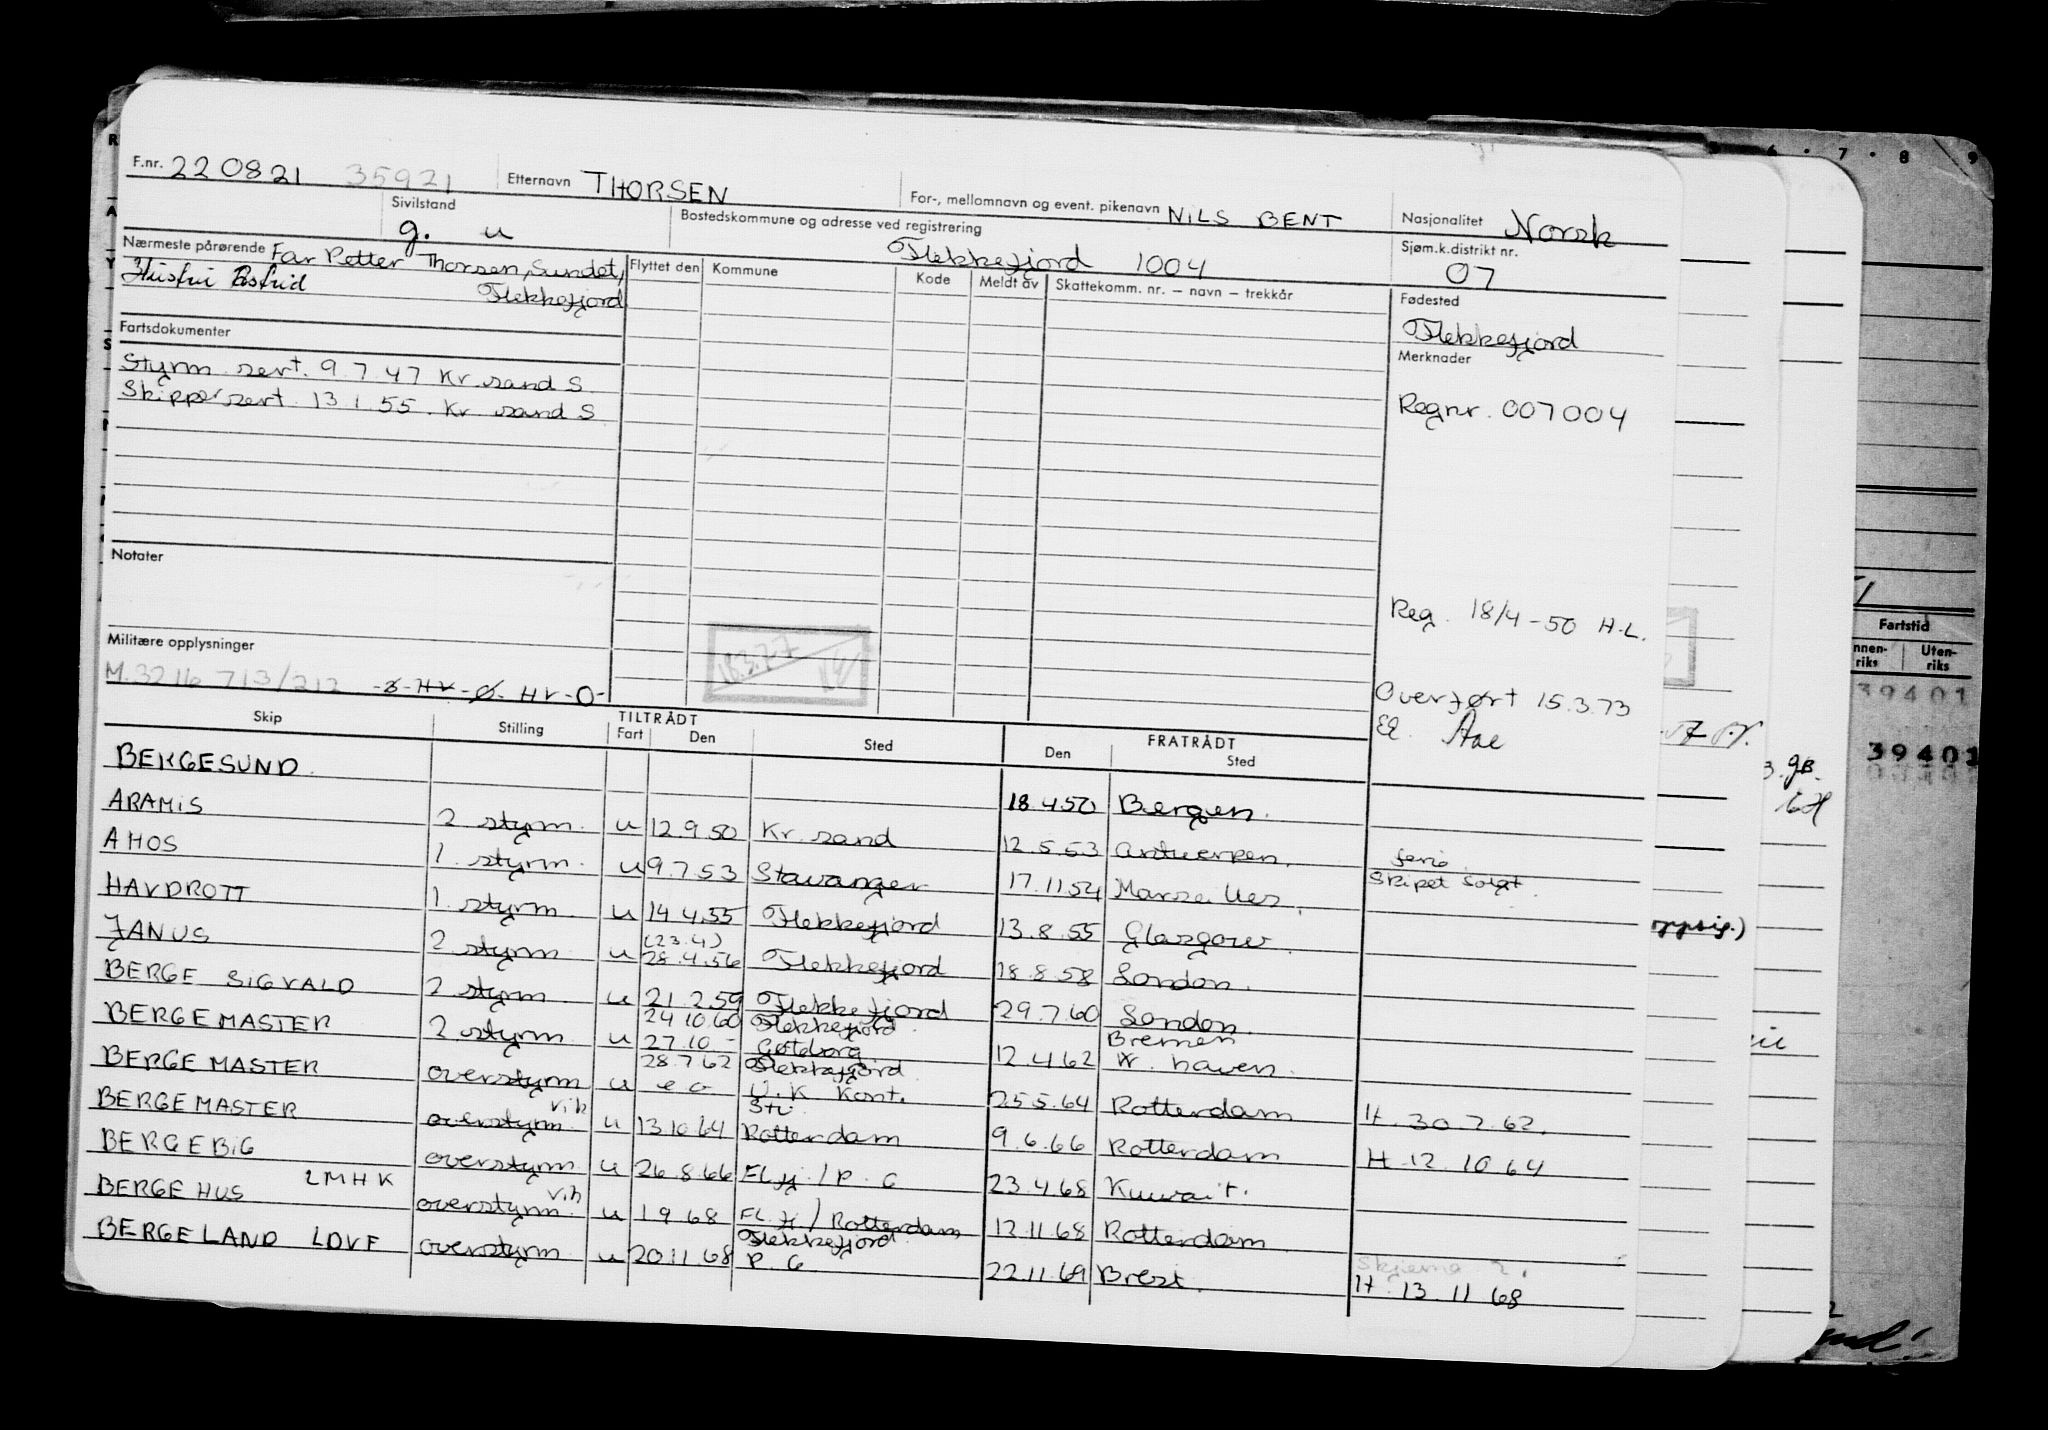 F.nr. 220821 35921 Etternavn THORSEN For-, mellomnavn og event. pikenavn NILS BENT Nasjonalitet Norsk
Sivilstand g. u Bostedskommune og adresse ved registrering Flekkefjord 1004 Sjøm.k.distrikt nr. 07
Nærmeste pårørende Far Petter Thorsen, Sundet, Flekkefjord
Hustru Astrid
Flyttet den Kommune Kode Meldt av Skattekomm. nr. – navn – trekkår
Fødested
Flekkefjord
Fartsdokumenter
Styrm. sert. 9.7.47 Kr. sand S.
Skippersert. 13.1.55. Kr. sand S
Merknader
Regnr. 007004
Reg. 18/4-50 H.L.
Overført 15.3.73
Notater
Militære opplysninger
M.3216 713/212 HV-O-
Skip Stilling TILTRÅDT Fart Den Sted FRATRÅDT Den Sted
BERGESUND 18.4.50 Bergen.
ARAMIS 2 styrm. u 12.9.50 Kr. sand 12.5.53 Antwerpen. ferie
AHOS 1. styrm. u 9.7.53 Stavanger 17.11.54 Marseilles. Skipet solgt
HAVDROTT 1. styrm. u 14.4.55 Flekkefjord 13.8.55 Glasgow.
JANUS 2 styrm. u (23.4) 28.4.56 Flekkefjord 18.8.58 London.
BERGE SIGVALD 2 styrm. u 21.2.59 Flekkefjord 29.7.60 London.
BERGEMASTER 2. styrm. u 24.10.60 Flekkefjord 27.10 - Gøteborg 12.4.62 Bremen W. haven.
BERGEMASTER overstyrm u 28.7.62 Flekkefjord U.K Kont. 25.5.64 Rotterdam H. 30.7.62.
BERGEMASTER overstyrm. vik u 13.10.64 Rotterdam 9.6.66 Rotterdam H. 12.10.64
BERGEBIG overstyrm u 26.8.66 Fl.fj. / P. G 23.4.68 Kuwait.
BERGEHUS LMHK overstyrm. vik u 1.9.68 Fl.fj. / Rotterdam 12.11.68 Rotterdam
BERGELAND LDVF overstyrm u 20.11.68 Flekkefjord P. G 22.11.69 Brest. Skjema 2. H. 13.11.68
6 · 7 · 8 · 9
Fartstid
Uten-
riks
39401
39401